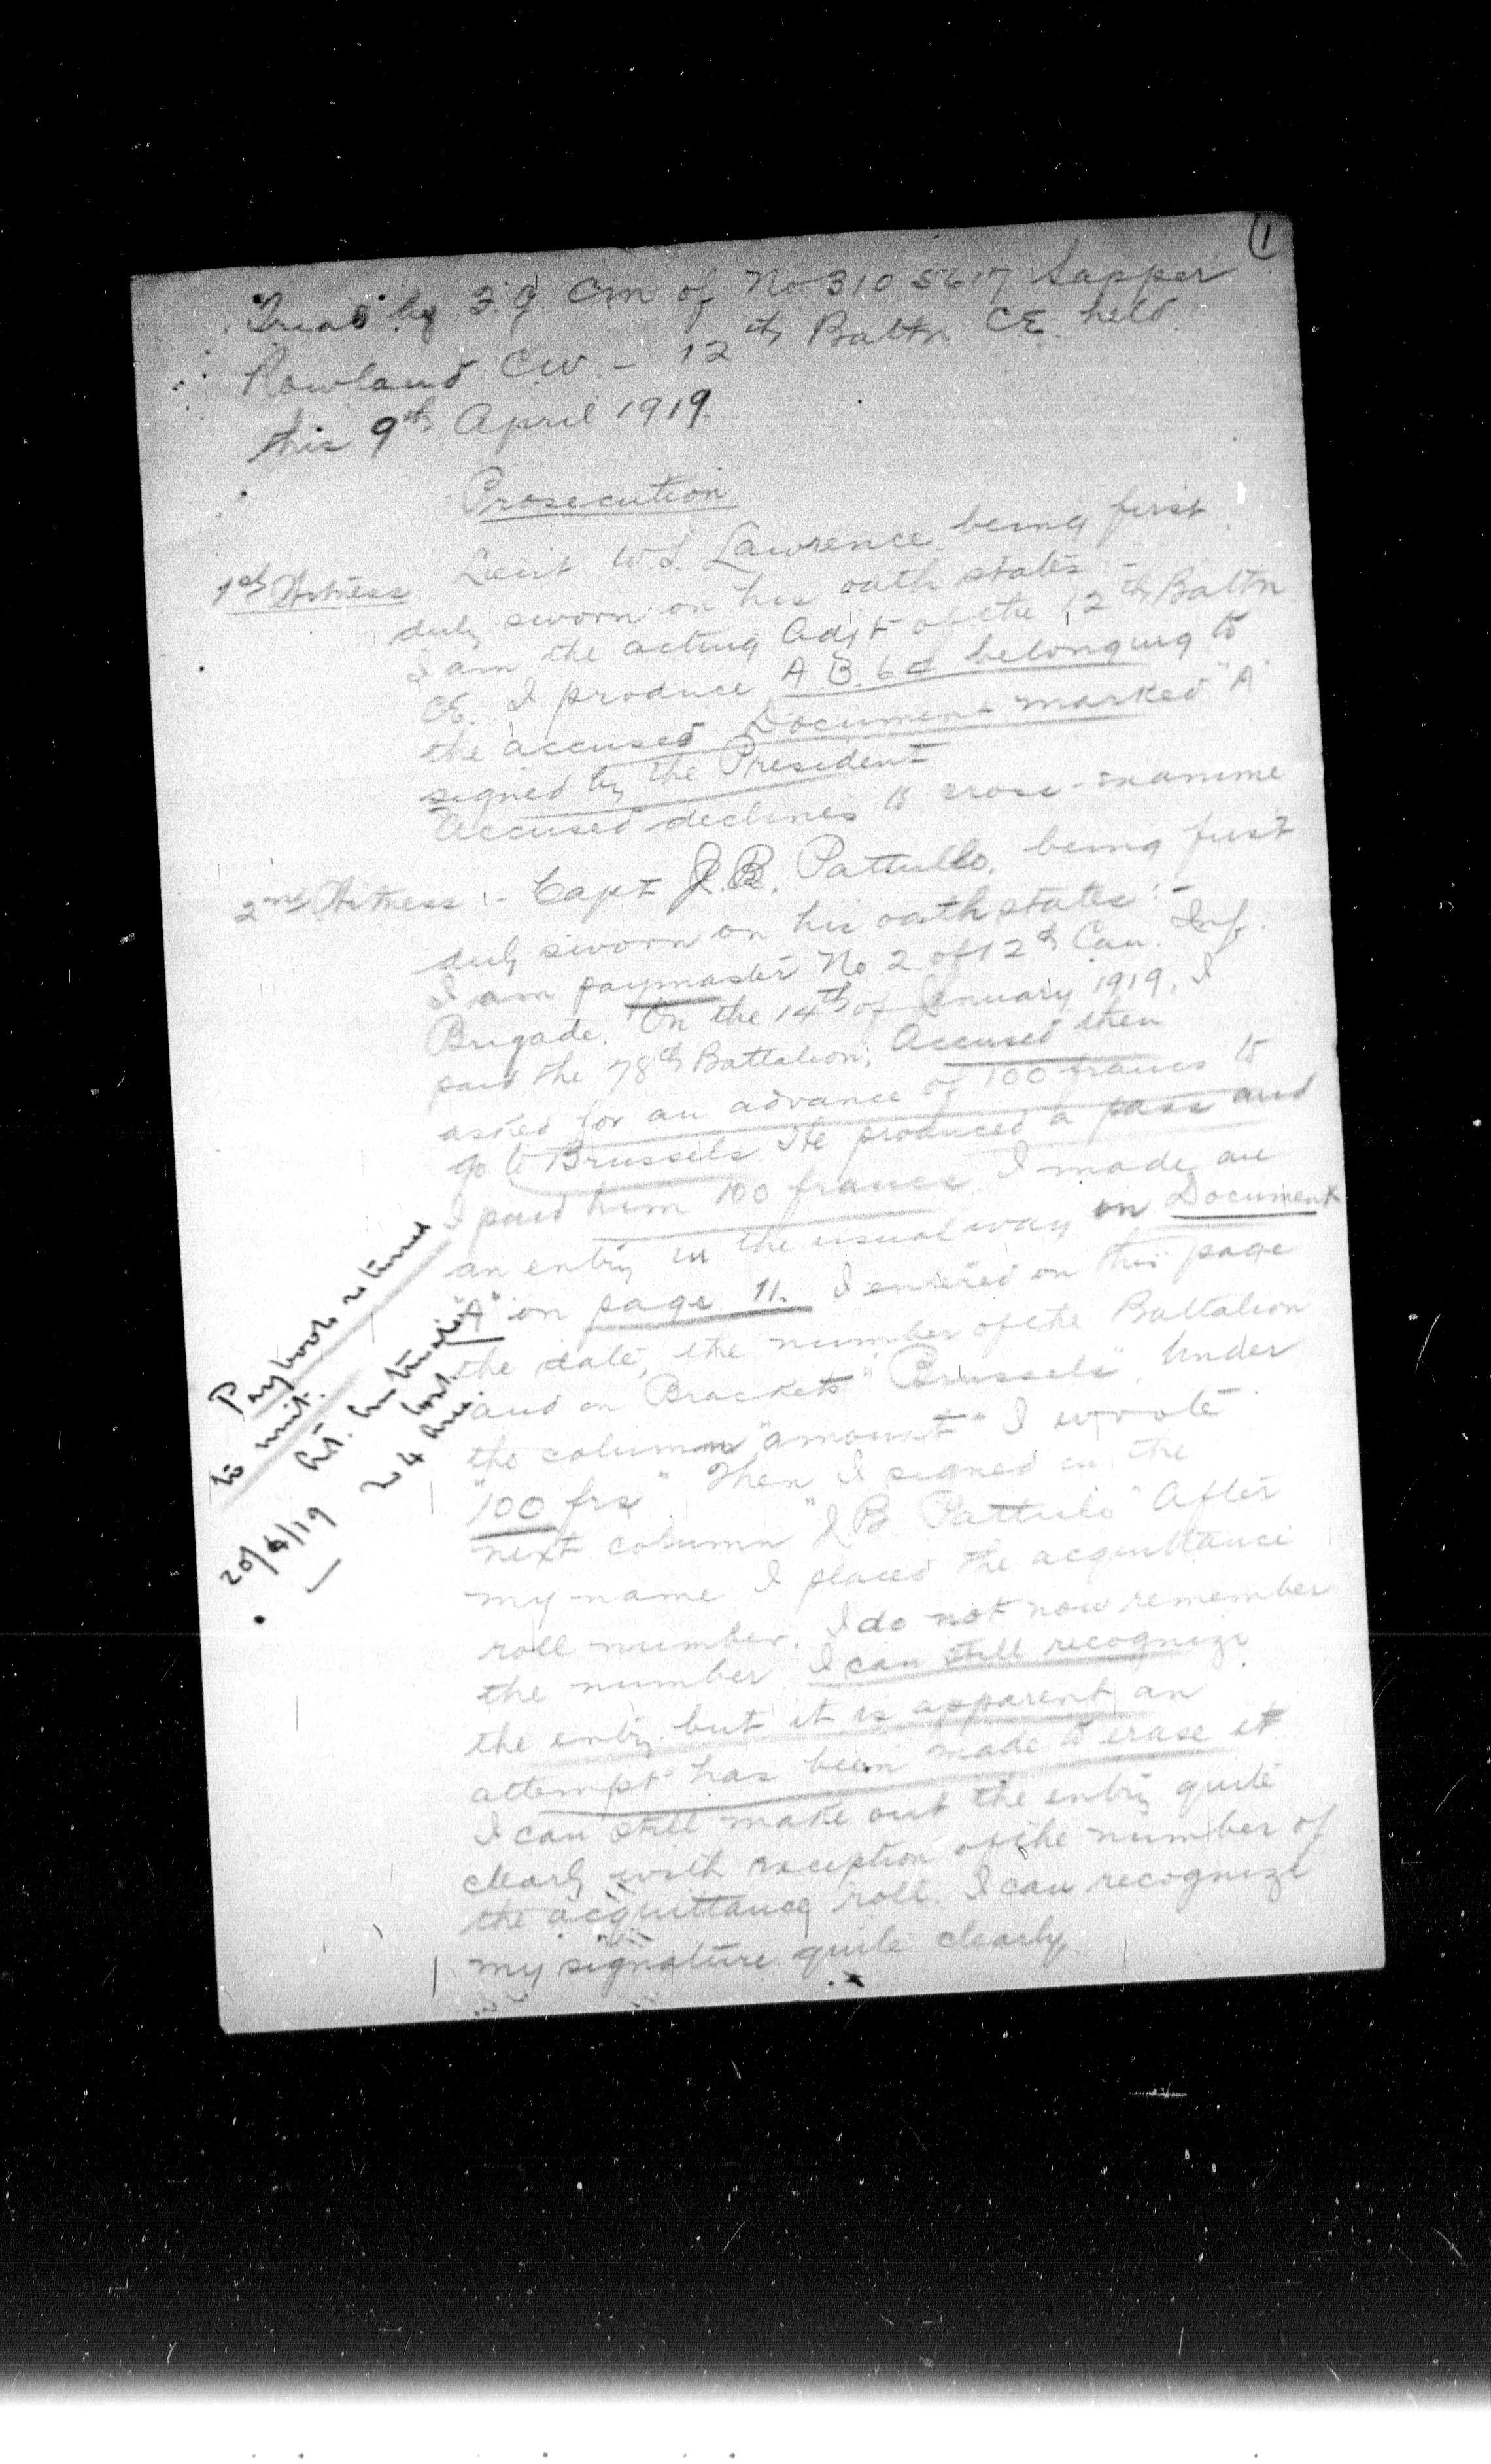 1
Trial by F.G. Cm of No 3105617 Sapper
Rowland CW. - 12th Battn CE. held
this 9th April 1919.
Prosecution
1st Witness Lieut W.L. Lawrence being first
duly sworn on his oath states :-
I am the acting Adjt of the 12th Battn
CE. I produce A.B. 64 belonging to
the accused Document marked "A"
signed by the President
Accused declines to cross-examine
2nd Witness :- Capt J.B. Pattullo, being first
duly sworn on his oath states :-
I am paymaster No 2 of 12th Can. Inf.
Brigade. On the 14th of January 1919, I
paid the 78th Battalion; Accused then
asked for an advance of 100 francs to
go to Brussels He produced a pass and
I paid him 100 francs. I made an
an entry in the usual way in Document
"A" on page 11. I entered on this page
the date, the number of the Battalion
and on Brackets "Brussels". Under
the column "amount" I wrote
"100 frs" Then I signed in the
next column "J B Pattulo" After
my name I placed the acquittance
roll number. I do not now remember
the number I can still recognize
the entry but it is apparent an
attempt has been made to erase it.
I can still make out the entry quite
clearly with exception of the number of
the acquittance roll. I can recognize
my signature quite clearly.
Paybook returned
to unit.
20/4/19